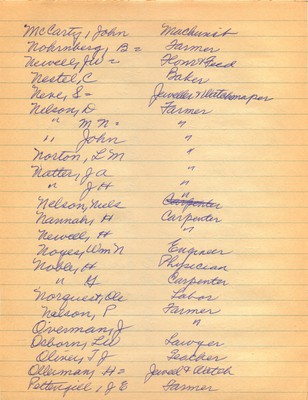 McCarty, John Machinist
Nohrnberg, B = Farmer
Newell, JW = Flour & Feed
Nestel, C Baker
New, S = Jeweller & Watchmaker
Nelson, D Farmer
" M N = "
" John "
Norton, L M "
Natter, J A "
" J H "
Nelson, Nels Carpenter "
Nannah, H Carpenter
Newell, H "
Noyes, Wm N Engineer
Noble, H Physician
" G Carpenter
Norquest, Ole Labor
Nelson, P Farmer
Overman, J "
Osborn, LW Lawyer
Oliney, T J Teacher
Ollerman, H = Jewel & Watch
Pettengiel, J E Farmer